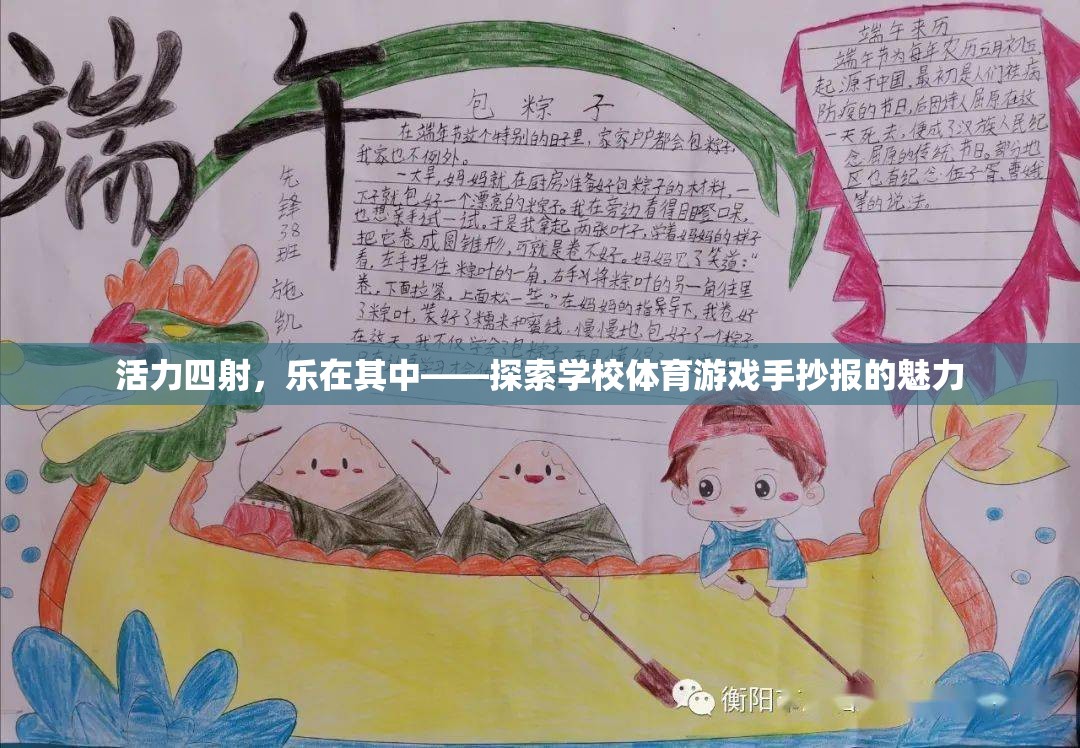 端午
先锋38班 施凯
包粽子
在端午节这个特别的日子里，家家户户都会包粽子，
我家也不例外。
一大早，妈妈就在厨房准备好包粽子的材料，一
下子就包好一个漂亮的粽子。我在旁边看得目瞪口呆，
也想亲手试一试。于是我拿起两张叶子，学着妈妈的样子
把它卷成圆锥形，可就是卷不好。妈妈见了笑道："
看，左手捏住粽叶的一角，右手将粽叶的另一角往里
卷，下面拉紧，上面松一些。"在妈妈的指导下，我卷好
了粽叶，装好了糯米和蜜枣，慢慢地包好了一个粽子
在这天，我不仅学会包粽子
端午来历
端午节为每年农历五月初五，
起源于中国，最初是人们祛病
防疫的节日，后因诗人屈原在这
一天死去，便成了汉族人民纪
念屈原的传统节日。部分地
区也有纪念伍子胥、曹娥
等的说法。
活力四射，乐在其中——探索学校体育游戏手抄报的魅力
衡阳